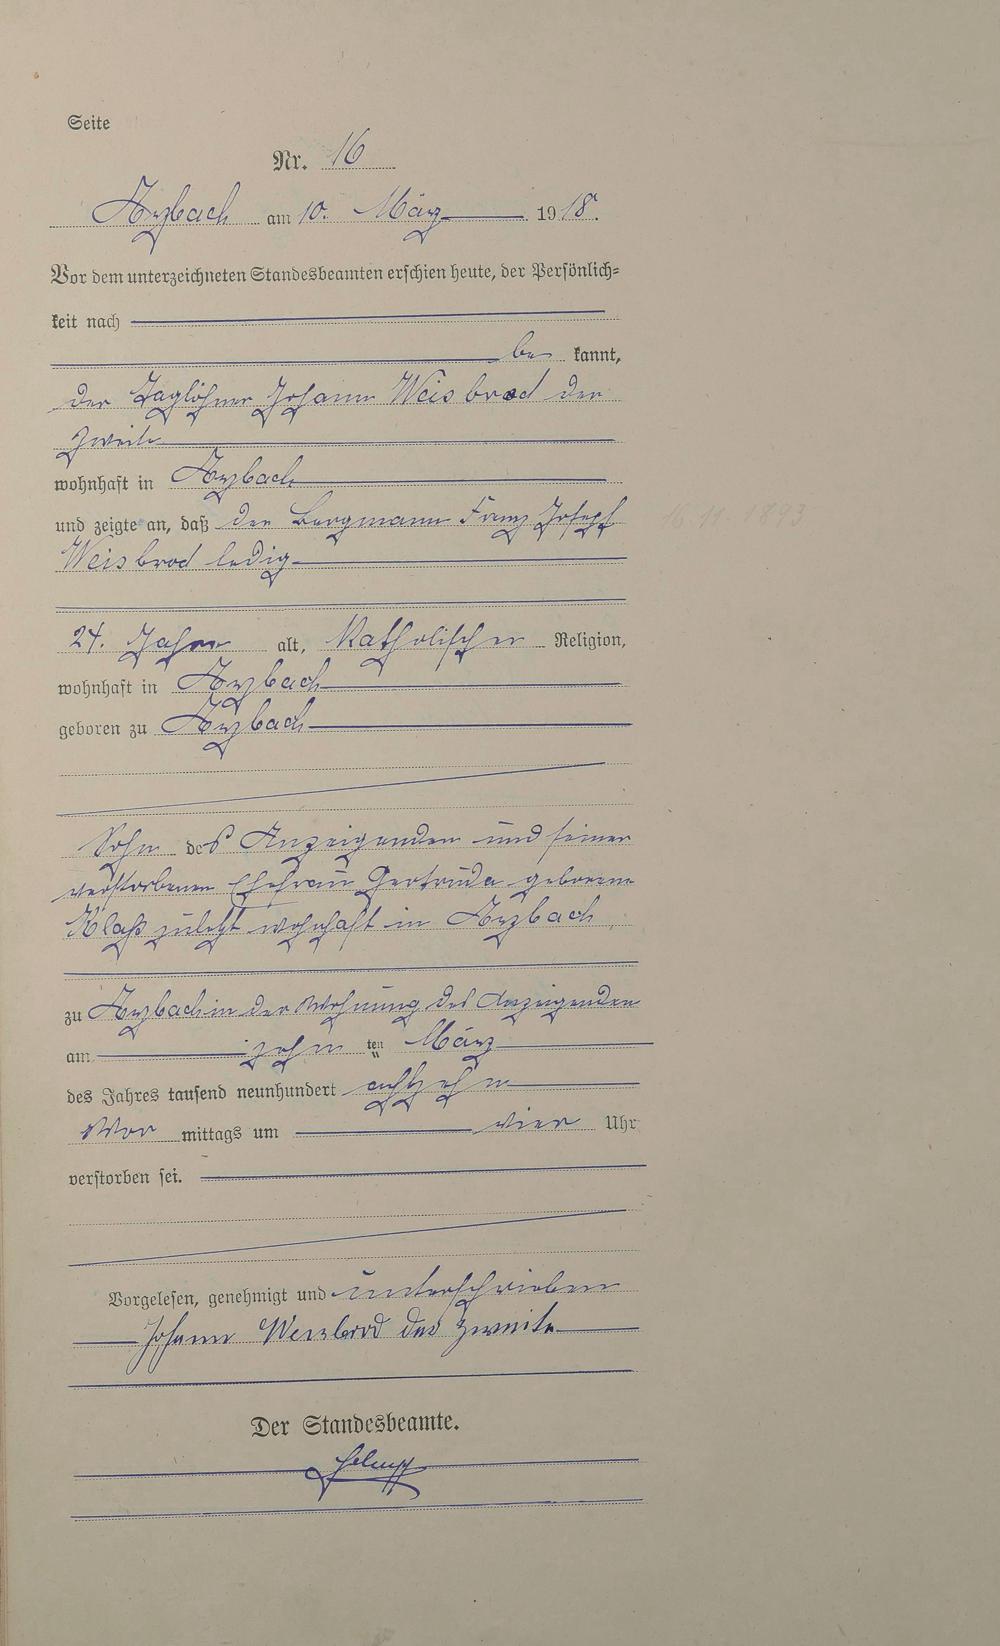 Seite
Nr. 16
Arzbach am 10. März 1918.
Vor dem unterzeichneten Standesbeamten erschien heute, der Persönlich=
keit nach
be kannt,
der Taglöhner Johann Weisbrod der
zweite
wohnhaft in Arzbach
und zeigte an, daß der Bergmann Franz Joseph
16.11.1893
Weisbrod ledig
24. Jahre alt, katholischer Religion,
wohnhaft in Arzbach
geboren zu Arzbach
Sohn des Anzeigenden und seiner
verstorbenen Ehefrau Gertruda geborene
Klaß zuletzt wohnhaft in Arzbach
zu Arzbach in der Wohnung des Anzeigenden
am zehn ten März
des Jahres tausend neunhundert achtzehn
Vor mittags um vier Uhr
verstorben sei.
Vorgelesen, genehmigt und unterschrieben
Johann Weisbrod der zweite
Der Standesbeamte.